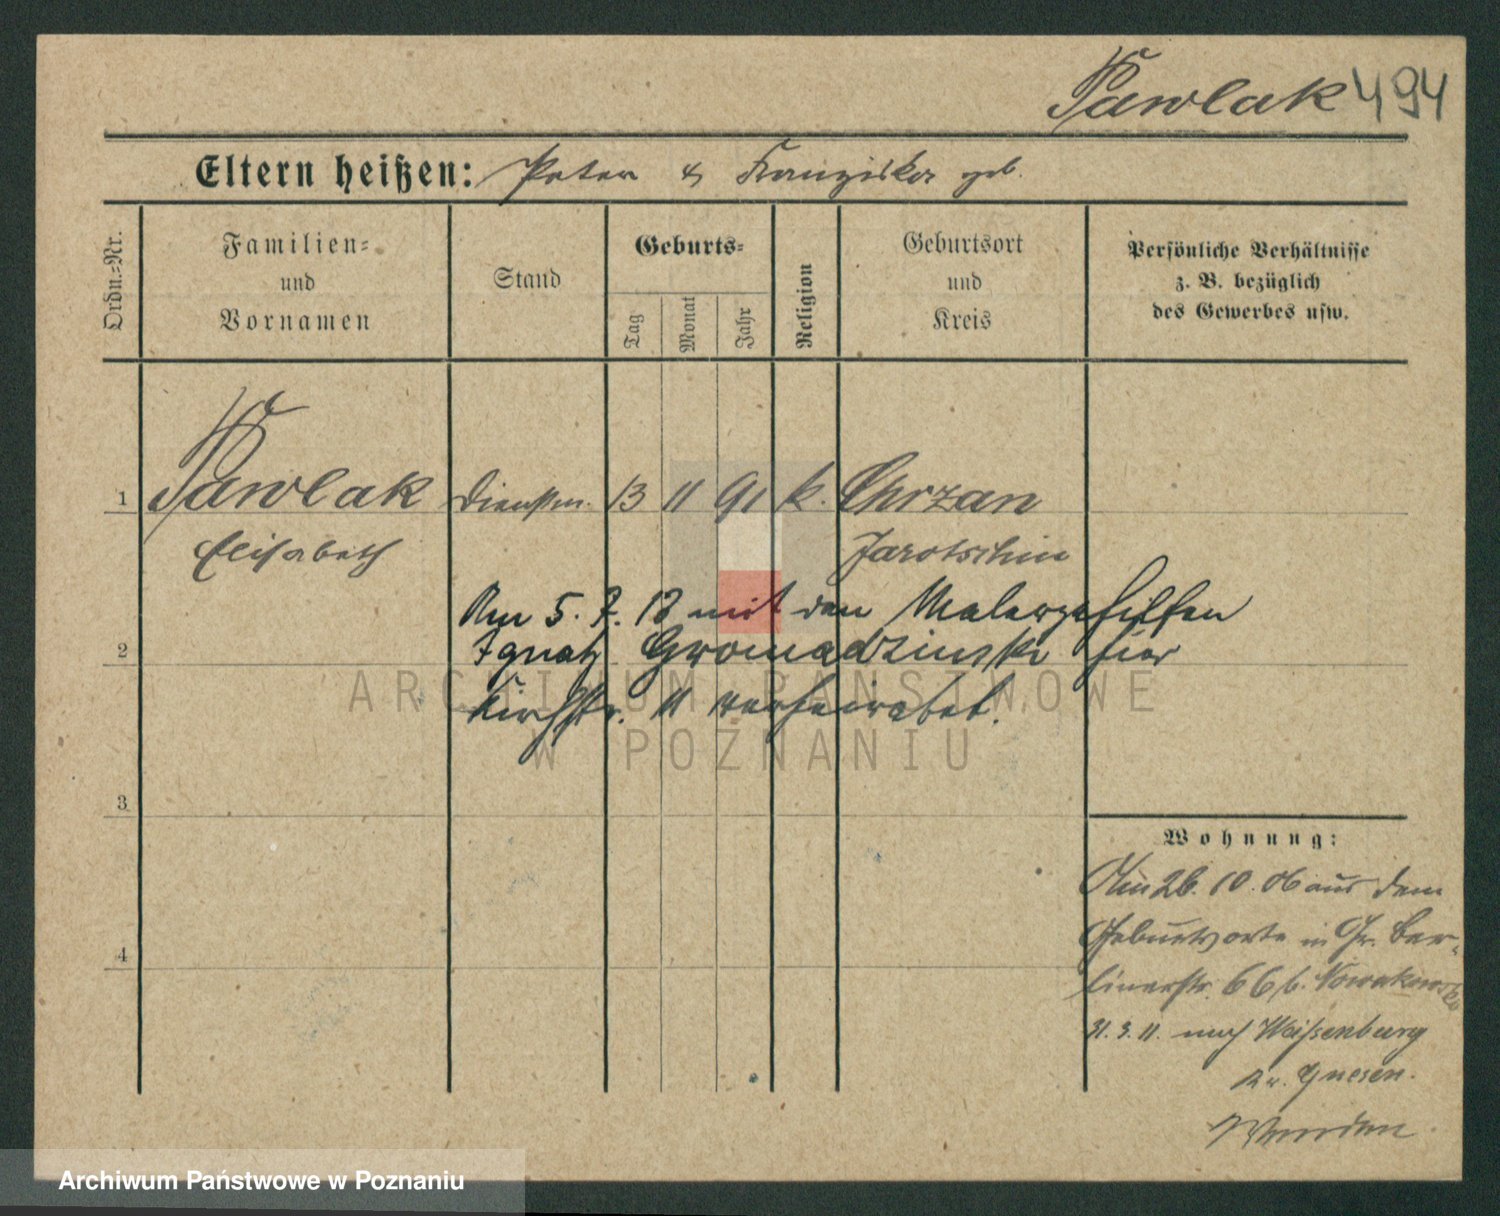 Pawlak 494
Eltern heißen: Peter & Franziska geb.
Ordn.-Nr.
Familien-
und
Vornamen
Stand
Geburts-
Tag
Monat
Jahr
Religion
Geburtsort
und
Kreis
Persönliche Verhältnisse
z. B. bezüglich
des Gewerbes usw.
1 Pawlak Dienstm. 13 11 91 k. Chrzan
Elisabeth Jarotschin
Am 5. 7. 13 mit dem Malergehilfen
2 Ignatz Gromadzinski hier
Kirchstr. 11 verheiratet.
3
Wohnung:
Am 26. 10. 06 aus dem
Geburtsorte in Gr. Ber-
4
linerstr. 66 b. Nowakowski
31. 3. 11. nach Weißenburg
Kr. Gnesen.
ARCHIWUM PAŃSTWOWE
W POZNANIU
Archiwum Państwowe w Poznaniu